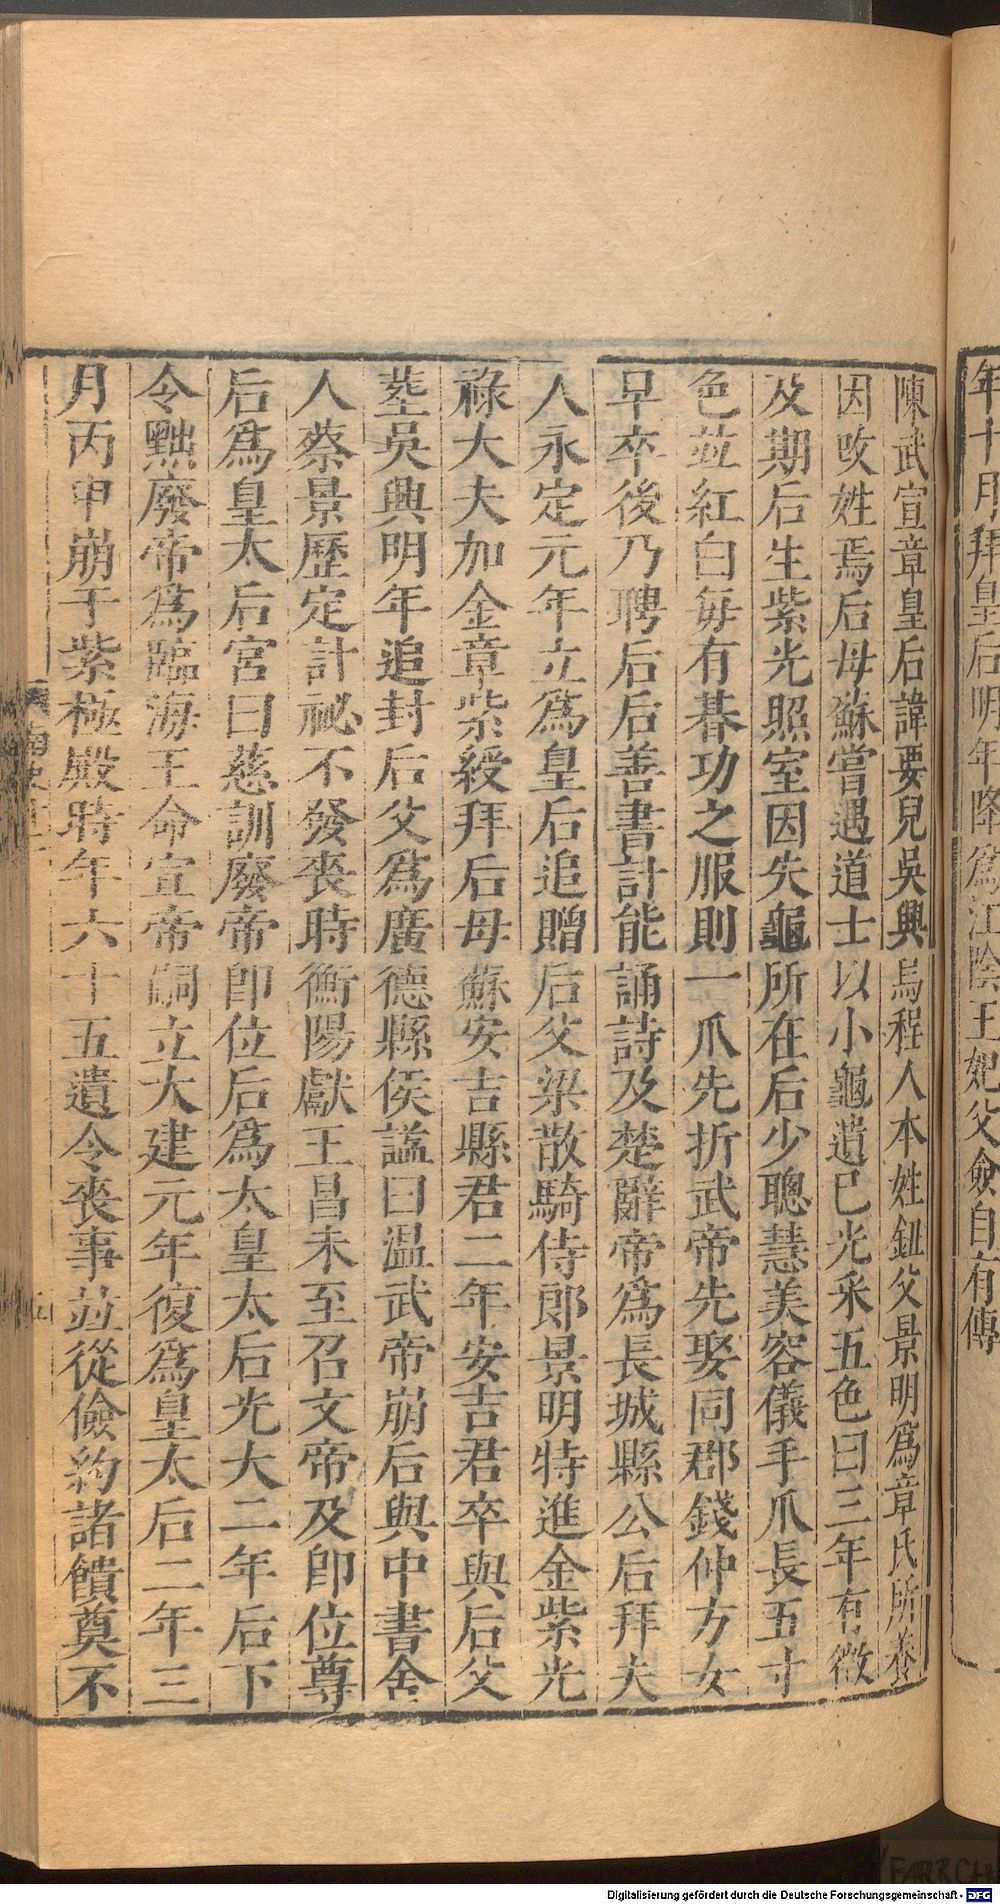 年十月拜皇后明年降爲江陰王妃父儉自有傳
陳武宣章皇后諱要兒吳興烏程人本姓鈕父景明爲章氏所養
因攺姓焉后母蘇嘗遇道士以小龜遺巳光采五色曰三年有徵
及期后生紫光照室因失龜所在后少聰慧美容儀手爪長五寸
色並紅白每有朞功之服則一爪先折武帝先娶同郡錢仲方女
早卒後乃聘后后善書計能誦詩及楚辭帝爲長城縣公后拜夫
人永定元年立爲皇后追贈后父梁散騎侍郎景明特進金紫光
祿大夫加金章紫綬拜后母蘇安吉縣君二年安吉君卒與后父
塟吳興明年追封后父爲廣德縣侯謚曰温武帝崩后與中書舍
人蔡景歷定計祕不發喪時衡陽獻王昌未至召文帝及卽位尊
后爲皇太后宮曰慈訓廢帝卽位后爲太皇太后光大二年后下
令黜廢帝爲臨海王命宣帝嗣立大建元年復爲皇太后二年三
月丙申崩于紫極殿時年六十五遺令喪事並從儉約諸饋奠不
南史
五
Digitalisierung gefördert durch die Deutsche Forschungsgemeinschaft - DFG